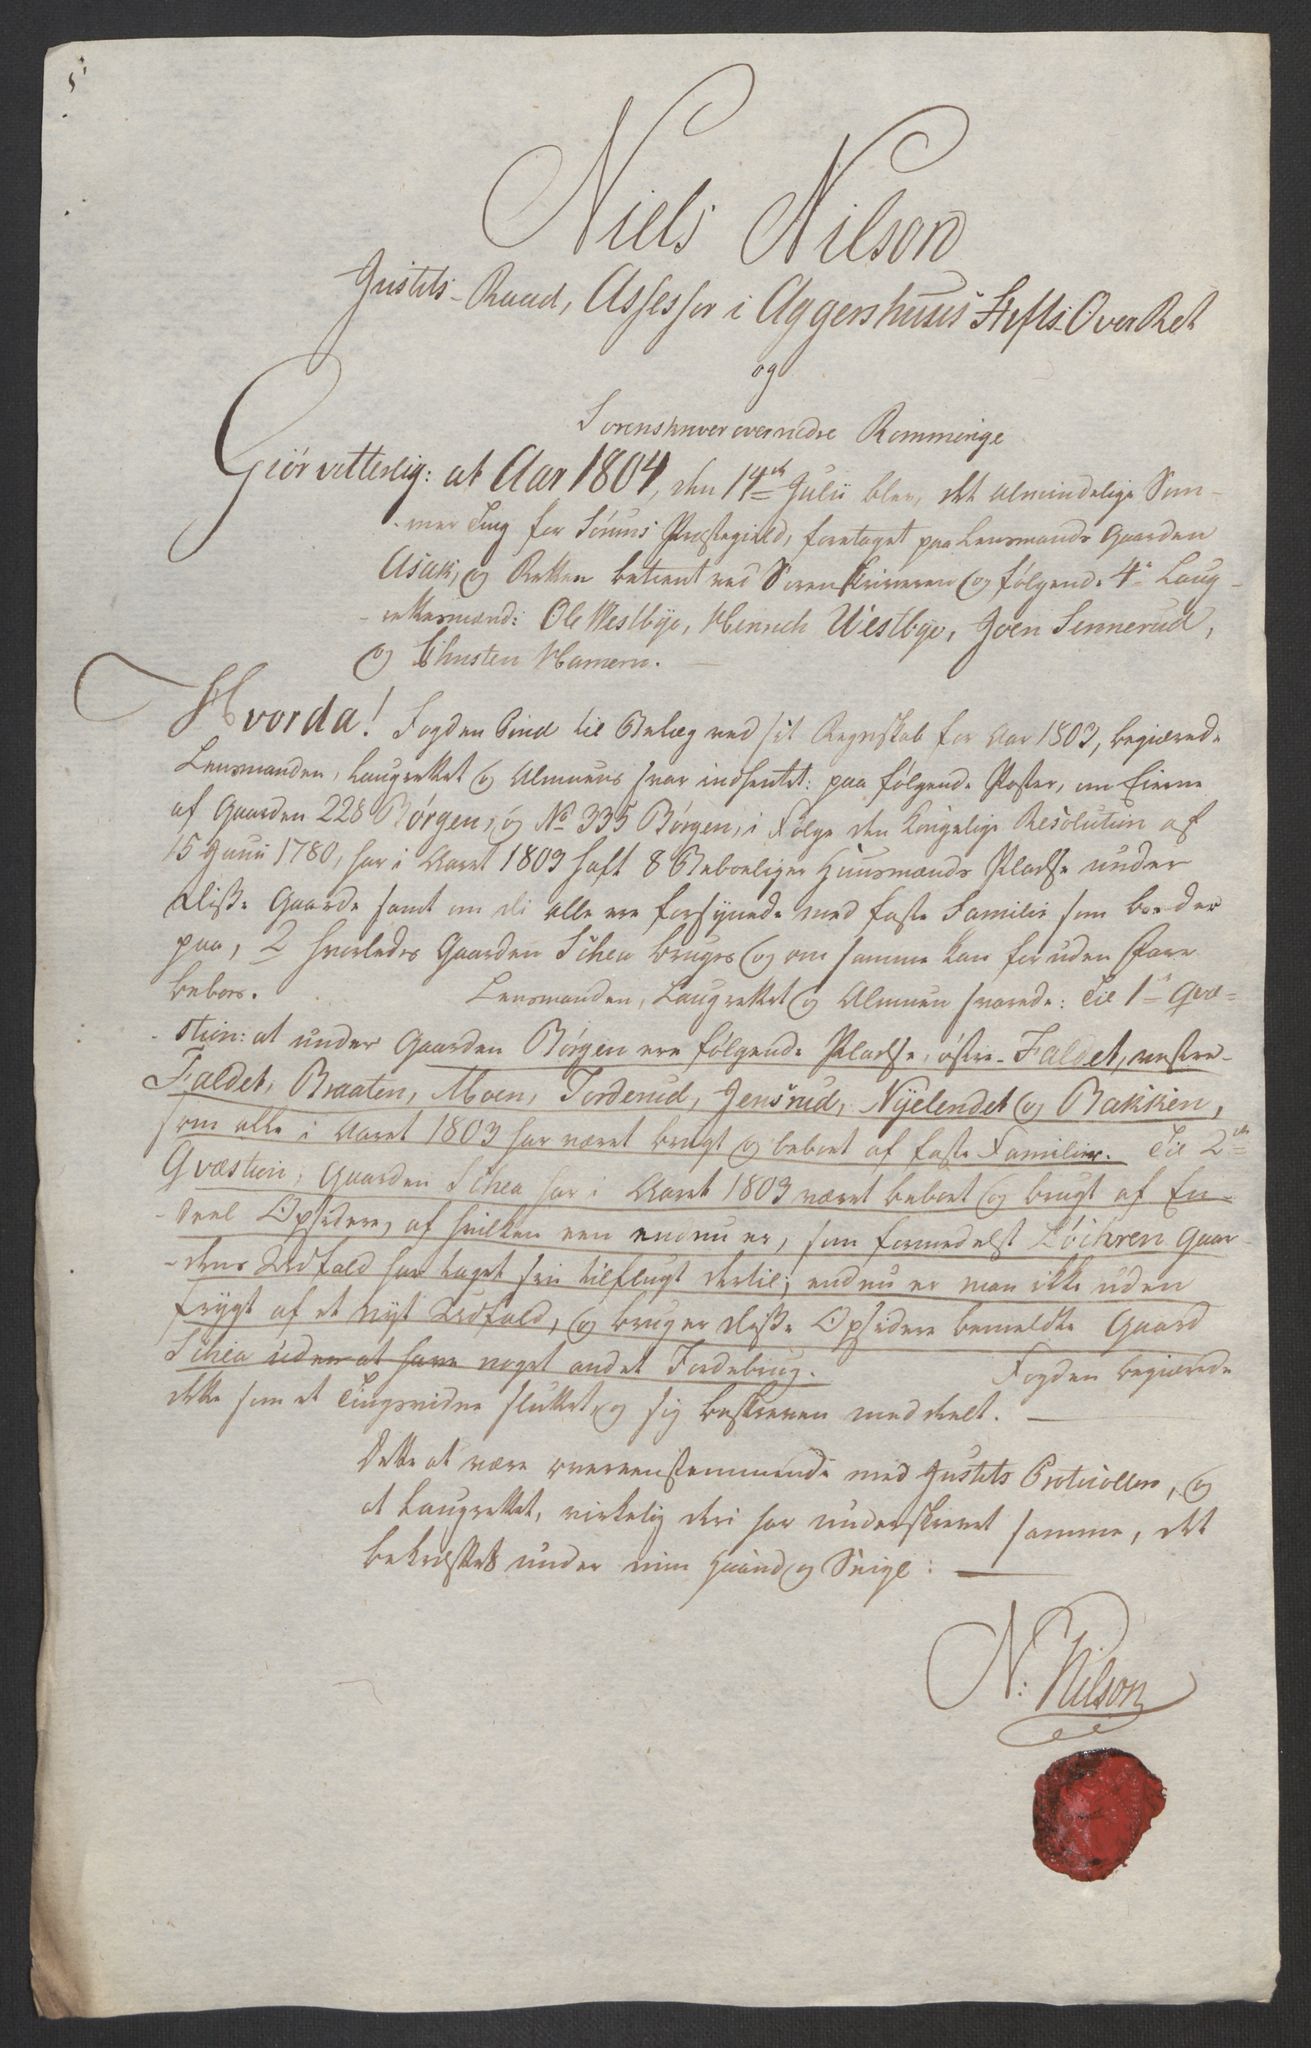 Niels Nilson
Justits-Raad, Assessor i Aggershuus Stifts OverRet
og
Sorenskriver over nedre Rommerige
Giør vitterlig: at Aar 1804, den 14de Julii blev, det almindelige Som-
-mer Ting for Sørums Præstegield, foretaget paa Lensmands Gaarden
Asak, og Retten betient ved Sorenskriveren og følgende 4re Laug-
-rettesmænd: Ole Westbye, Henrich Westbye, Joen Sennerud,
og Christen Hamern.
Hvorda! Fogden Bind til Belæg ved sit Regnskab for Aar 1803, begiærede
Lensmanden, Laugrettet og Almuens svar indhentet: paa følgende Poster, om Eierne
af Gaarden 228 Børgen, og No 335 Børgen, i Følge den Kongelige Resolution af
15 Junii 1780, har i Aaret 1803 haft 8 Beboelige Huusmands Pladse under
disse Gaarde samt om de alle ere forsynede med faste Familie som boe der
paa, 2 hvorledes Gaarden Schea bruges og om samme kan foruden Fare
beboes. Lensmanden, Laugrettet og Almuen svarede: Til 1ste Qvæ-
-stion: at under Gaarden Børgen ere følgende Pladse, østre-Faldet, vestre-
Faldet, Braaten, Moen, Torderud, Jensrud, Nyelendet og Bakken,
som alle i Aaret 1803 har været brugt og beboet af faste Familier. Til 2den
Qvæstion, Gaarden Schea har i Aaret 1803 været beboet og brugt af En-
-deel Opsidere, af hvilken een endnu er, som formedelst Löchren Gaar-
-dens Udfald har taget sin tilflugt dertil; endnu er man ikke uden
frygt af et nyt Udfald, og bruger disse Opsidere bemeldte Gaard
Schea uden at have noget andet Jordebrug. Fogden begiærede
dette som et Tingsvidne sluttet, og sig beskreven meddeelt.
Dette at være overeenstemmende med Justits Protocollen, og
at Laugrettet, virkelig deri har underskrevet samme, det
bekræftes under min Haand og Seigl:
N: Nilson